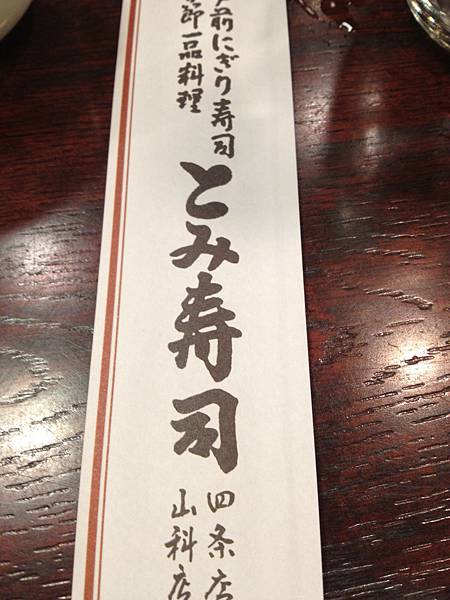 前にぎり寿司
節一品料理
とみ寿司
四条店
山科店